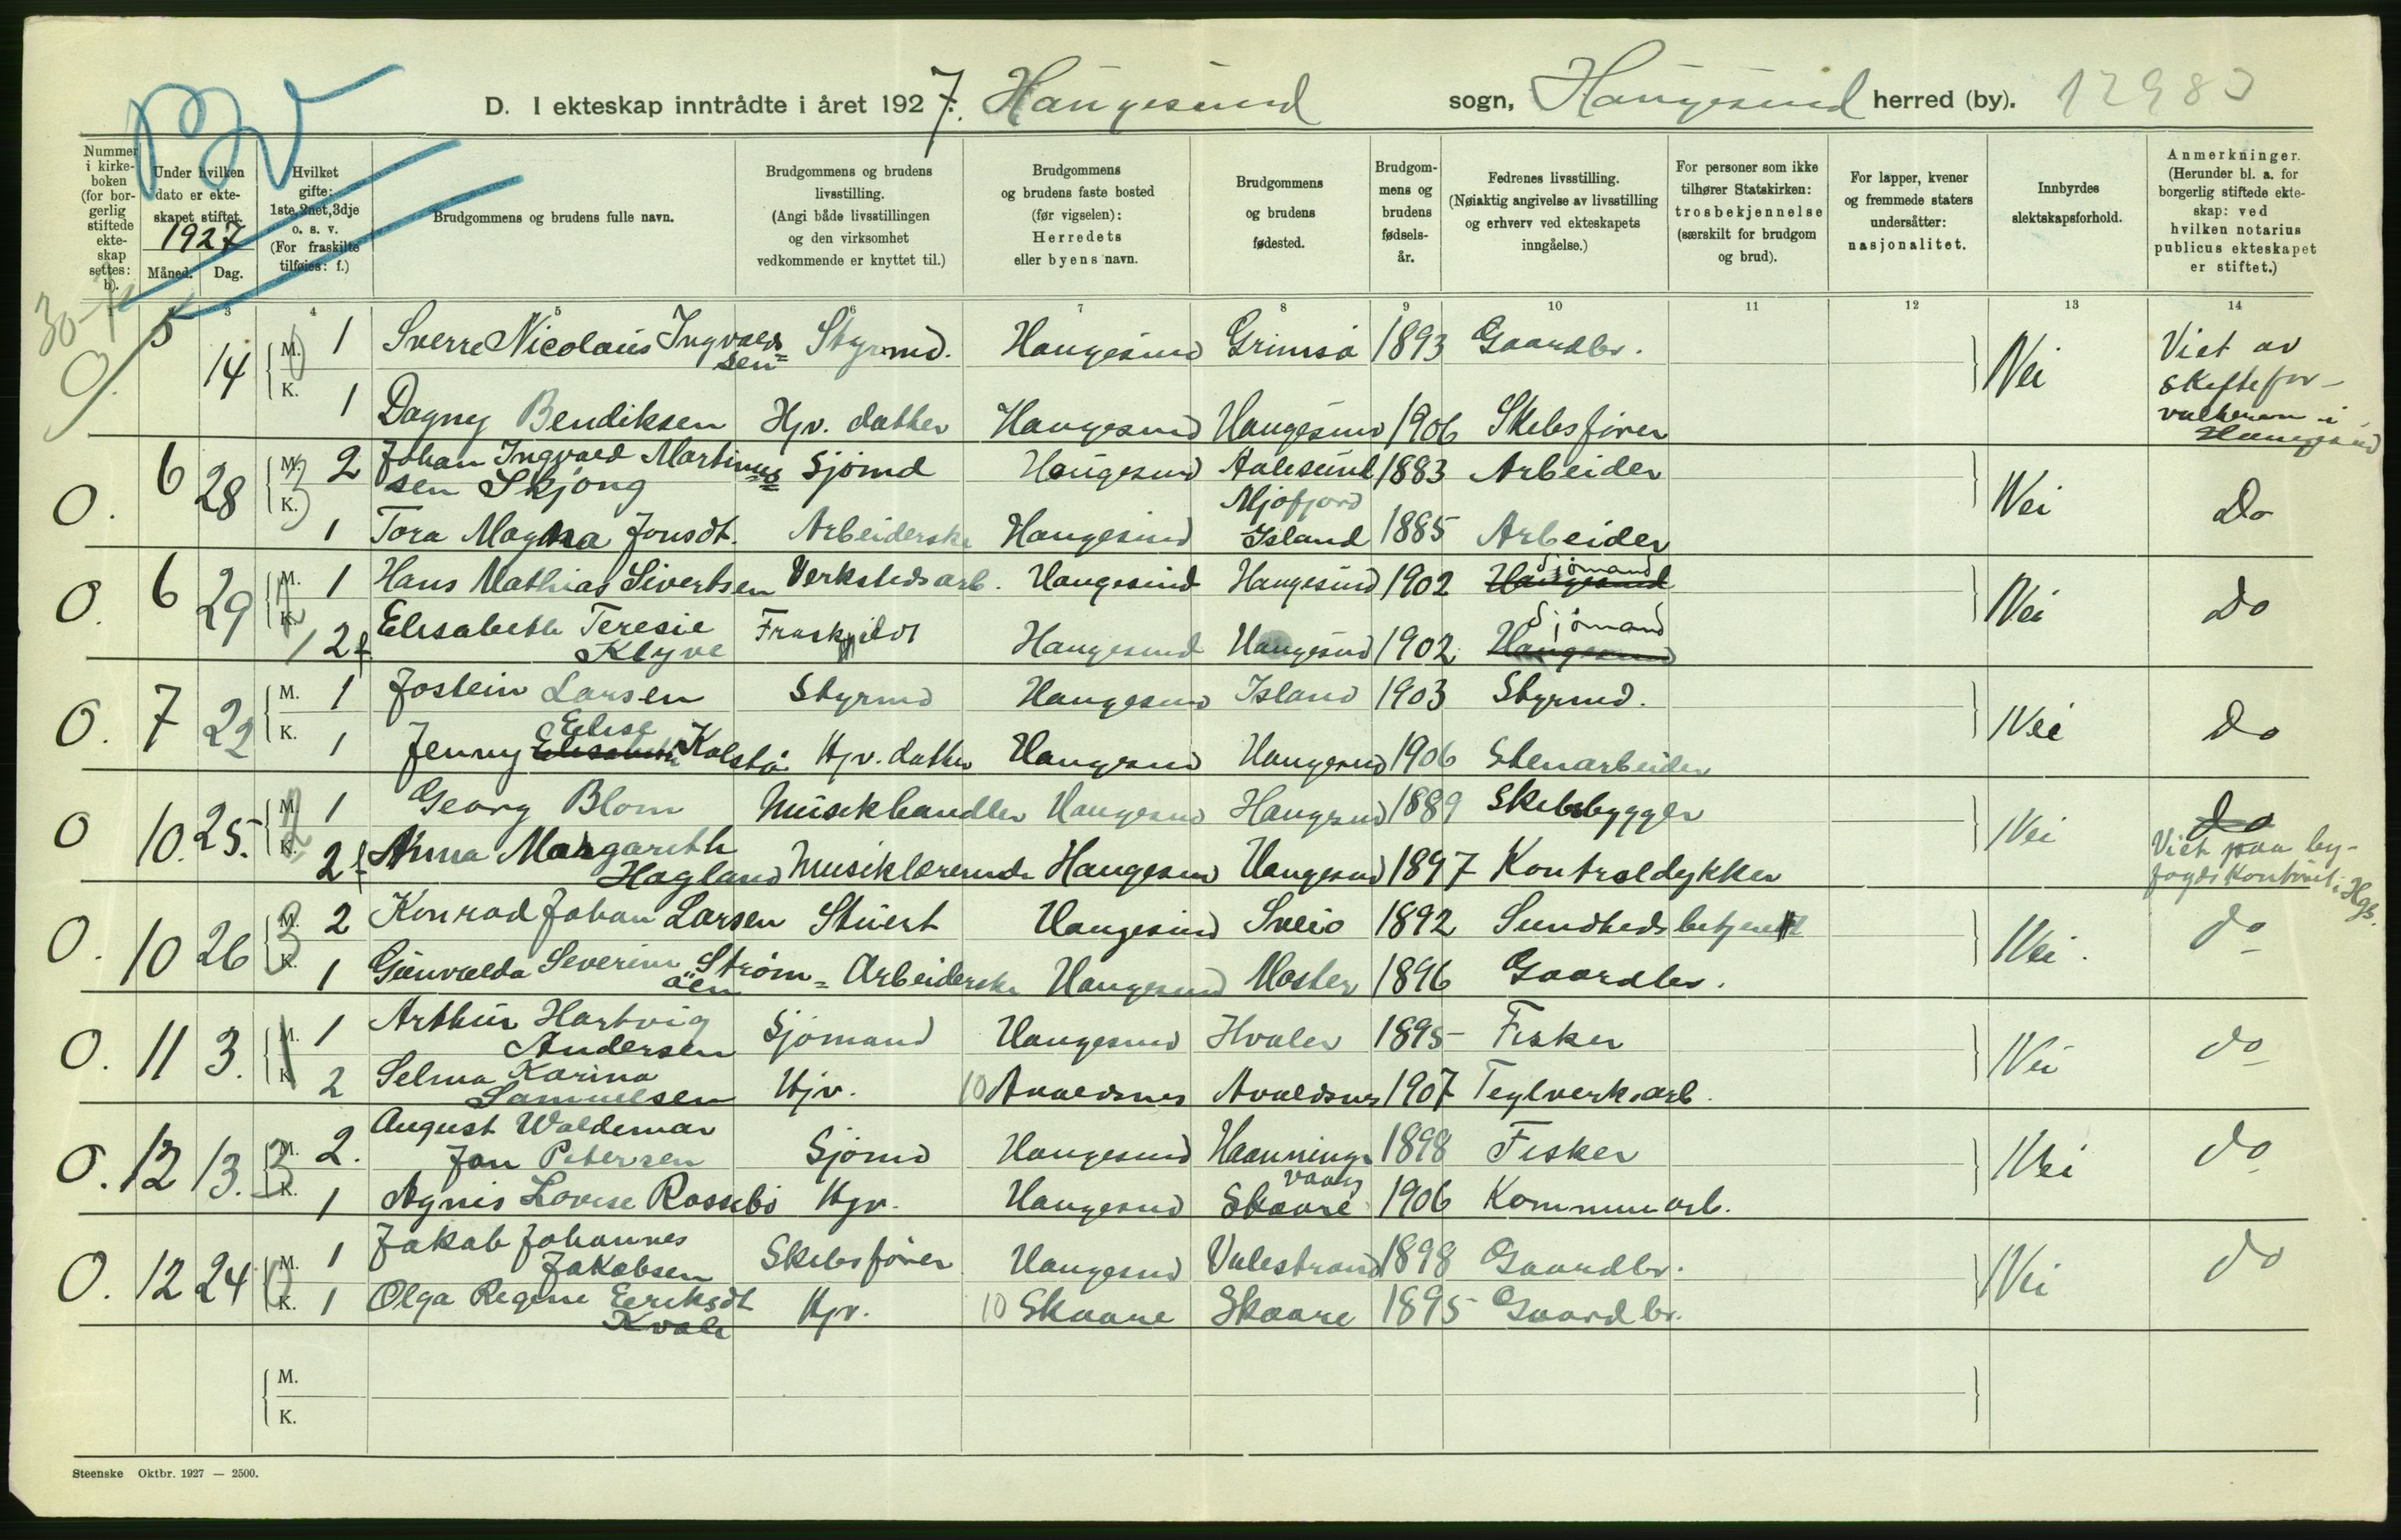 BV
D. I ekteskap inntrådte i året 1927. Haugesund sogn, Haugesund herred (by). 12983
Nummer i kirkeboken (for borgerlig stiftede ekteskap settes: b).
Under hvilken dato er ekteskapet stiftet. 1927 Måned. Dag.
Hvilket gifte: 1ste, 2net, 3dje o. s. v. (For fraskilte tilføies: f.)
Brudgommens og brudens fulle navn.
Brudgommens og brudens livsstilling. (Angi både livsstillingen og den virksomhet vedkommende er knyttet til.)
Brudgommens og brudens faste bosted (før vigselen): Herredets eller byens navn.
Brudgommens og brudens fødested.
Brudgommens og brudens fødselsår.
Fedrenes livsstilling. (Nøiaktig angivelse av livsstilling og erhverv ved ekteskapets inngåelse.)
For personer som ikke tilhører Statskirken: trosbekjennelse (særskilt for brudgom og brud).
For lapper, kvener og fremmede staters undersåtter: nasjonalitet.
Innbyrdes slektskapsforhold.
Anmerkninger. (Herunder bl. a. for borgerlig stiftede ekteskap: ved hvilken notarius publicus ekteskapet er stiftet.)
3 4 5 6 7 8 9 10 11 12 13 14
5 14 M. 1 Sverre Nicolaus Ingvaldsen Styrmd. Haugesund Grimså 1893 Gaardbr. Nei Viet av skiftefor-
K. 1 Dagny Bendiksen Hjv. datter Haugesund Haugesund 1906 Skibsfører i Haugesund
O. 6 28 M. 2 Johan Ingvald Martinussen Skjong Sjømd Haugesund Aalesund 1883 Arbeider Nei Do
K. 1 Tora Magna Jonsdt. Arbeiderske Haugesund Mjofjord Island 1885 Arbeider
O. 6 29 M. 1 Hans Mathias Sivertsen Verkstedsarb. Haugesund Haugesund 1902 Haugesund Sjømand Nei Do
K. 2 f Elisabeth Teresie Klyve Fraskjildt Haugesund Haugesund 1902 Haugesund Sjømand
O. 7 22 M. 1 Jostein Larsen Styrmd Haugesund Island 1903 Styrmd. Nei Do
K. 1 Jenny Elisabeth Elise Kolstø Hjv. datter Haugesund Haugesund 1906 Stenarbeider
O 10. 25. M. 1 Georg Blom Musikhandler Haugesund Haugesund 1889 Skibsbygger Nei Do
K. 2 f Anna Margareth Hagland Musiklærerinde Haugesund Haugesund 1897 Kontroldykker Viet paa byfogdkontoret i Hgs.
O. 10 26 M. 2 Konrad Johan Larsen Stuert Haugesund Sveio 1892 Sundhedsbetjent Nei. do
K. 1 Gunvalda Severine Strømøen Arbeiderske Haugesund Moster 1896 Gaardbr.
O. 11 3. M. 1 Arthur Hartvig Andersen Sjømand Haugesund Hvaler 1895 Fisker Nei do
K. 2 Selma Karina Samuelsen Hjv. 10 Avaldsnes Avaldsnes 1907 Teglverksarb.
O. 12 13. M. 2. August Waldemar Jan Petersen Sjømd Haugesund Haanningsvaag 1898 Fisker Nei do
K. 1 Agnes Lovise Rossebø Hjv. Haugesund Skaare 1906 Kommunearb.
O. 12 24 M. 1 Jakob Johannes Jakobsen Skibsfører Haugesund Valestrand 1898 Gaardbr. Nei do
K. 1 Olga Regine Eeriksdt Kvale Hjv. 10 Skaare Skaare 1895 Gaardbr.
M.
K.
Steenske Oktbr. 1927 — 2500.